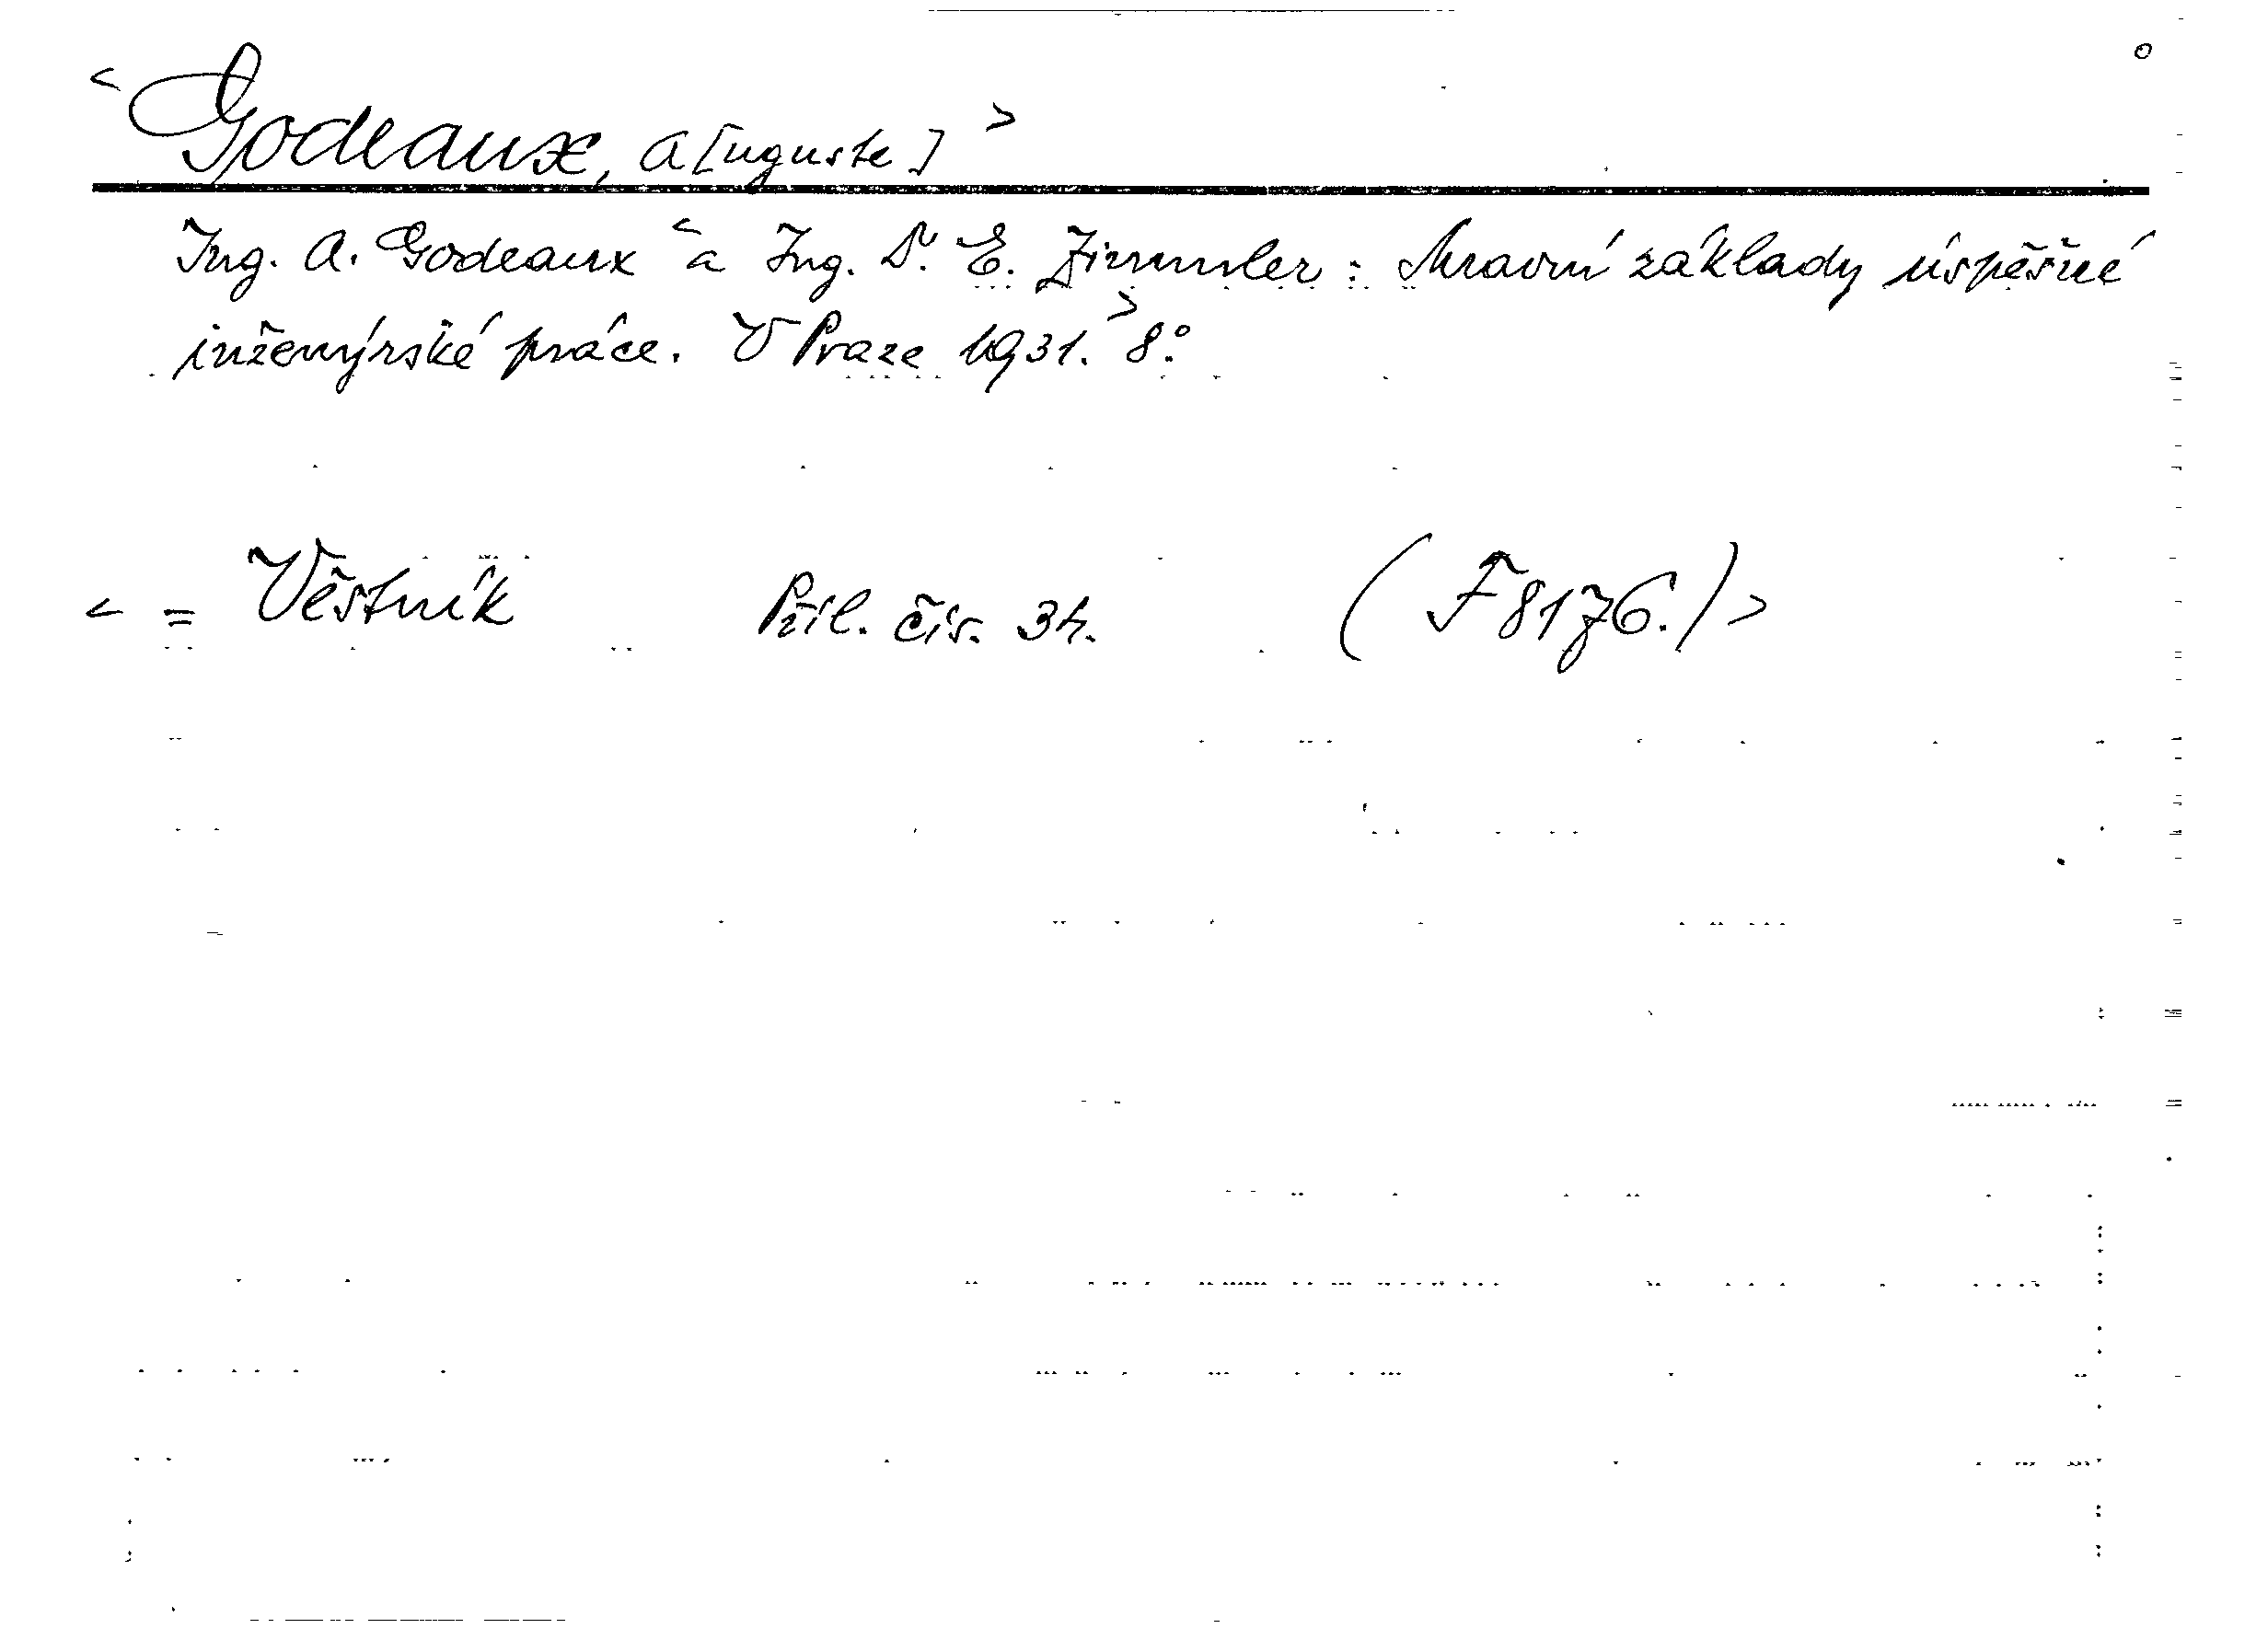 <Godeaux, A[uguste]>
Ing. A. Godeaux <a Ing. Dr. E. Zimmler: Mravní základy úspěšné
inženýrské práce. V Praze 1931.> 8°.
< = Věstník Příl. čís. 34. (F 8176.)>